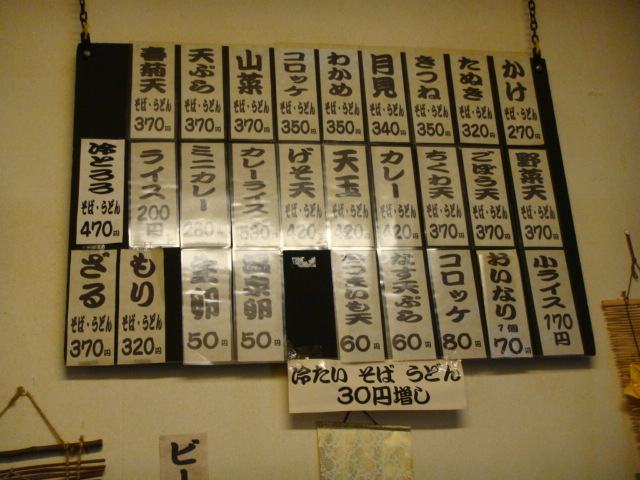 かけ
そば・うどん
270円
たぬき
そば・うどん
320円
きつね
そば・うどん
350円
月見
そば・うどん
340円
わかめ
そば・うどん
350円
コロッケ
そば・うどん
350円
山菜
そば・うどん
370円
天ぷら
そば・うどん
370円
春菊天
そば・うどん
370円
野菜天
そば・うどん
370円
ごぼう天
そば・うどん
370円
ちくわ天
そば・うどん
370円
カレー
そば・うどん
420円
天玉
そば・うどん
420円
げそ天
そば・うどん
420円
カレーライス
ミニカレー
ライス
200円
冷とろろ
そば・うどん
470円
小ライス
170円
おいなり
1個
70円
コロッケ
80円
なす天ぷら
60円
さつまいも天
60円
50円
生卵
50円
もり
そば・うどん
320円
ざる
そば・うどん
370円
冷たい そば うどん
30円増し
ビー